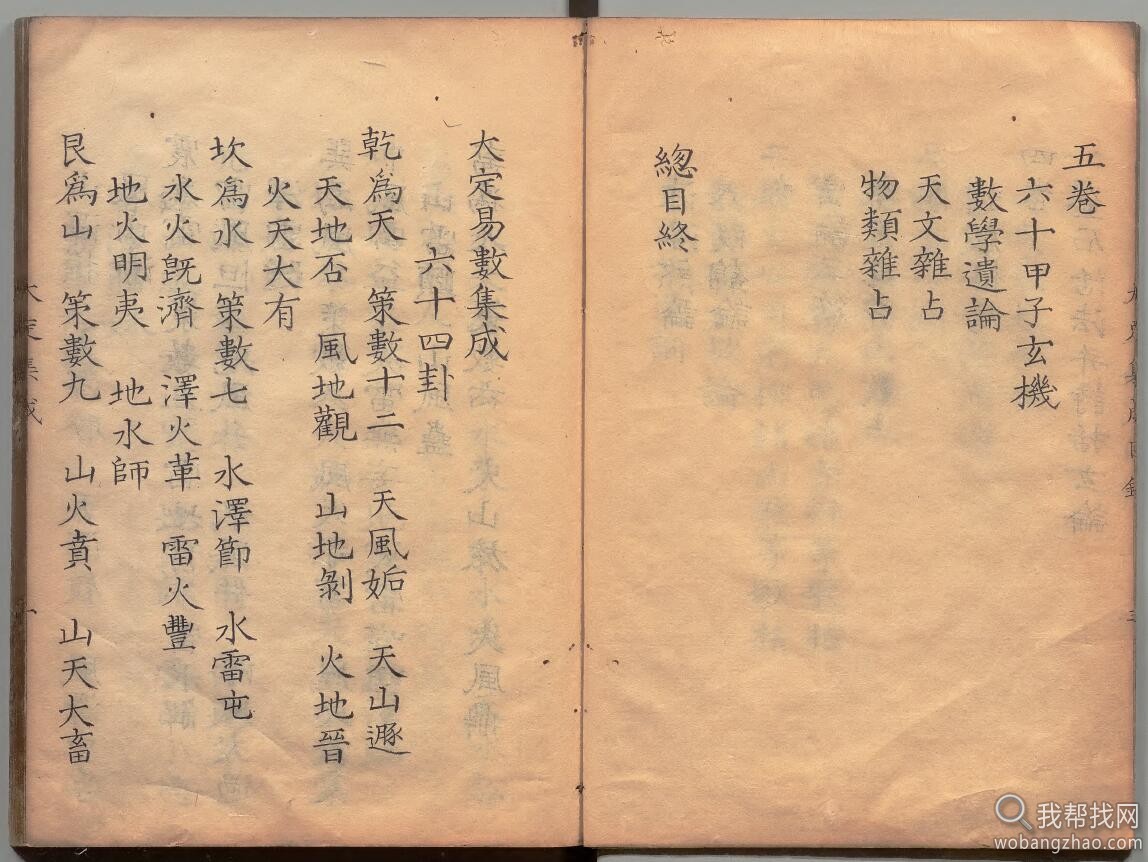 五卷
六十甲子玄機
數學遺論
天文雜占
物類雜占
總目終
大定易數集成
六十四卦
乾爲天 策數十二 天風姤 天山遯
天地否 風地觀 山地剝 火地晉
火天大有
坎爲水 策數七 水澤節 水雷屯
水火旣濟 澤火革 雷火豐
地火明夷 地水師
艮爲山 策數九 山火賁 山天大畜
我帮找网
wobangzhao.com